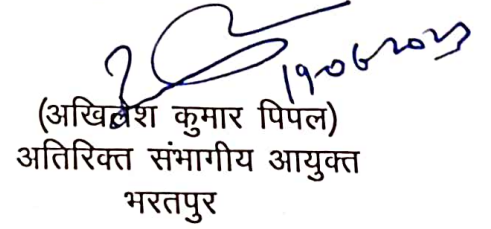 19-06-2023
(अखिलेश कुमार पिपल)
अतिरिक्त संभागीय आयुक्त
भरतपुर